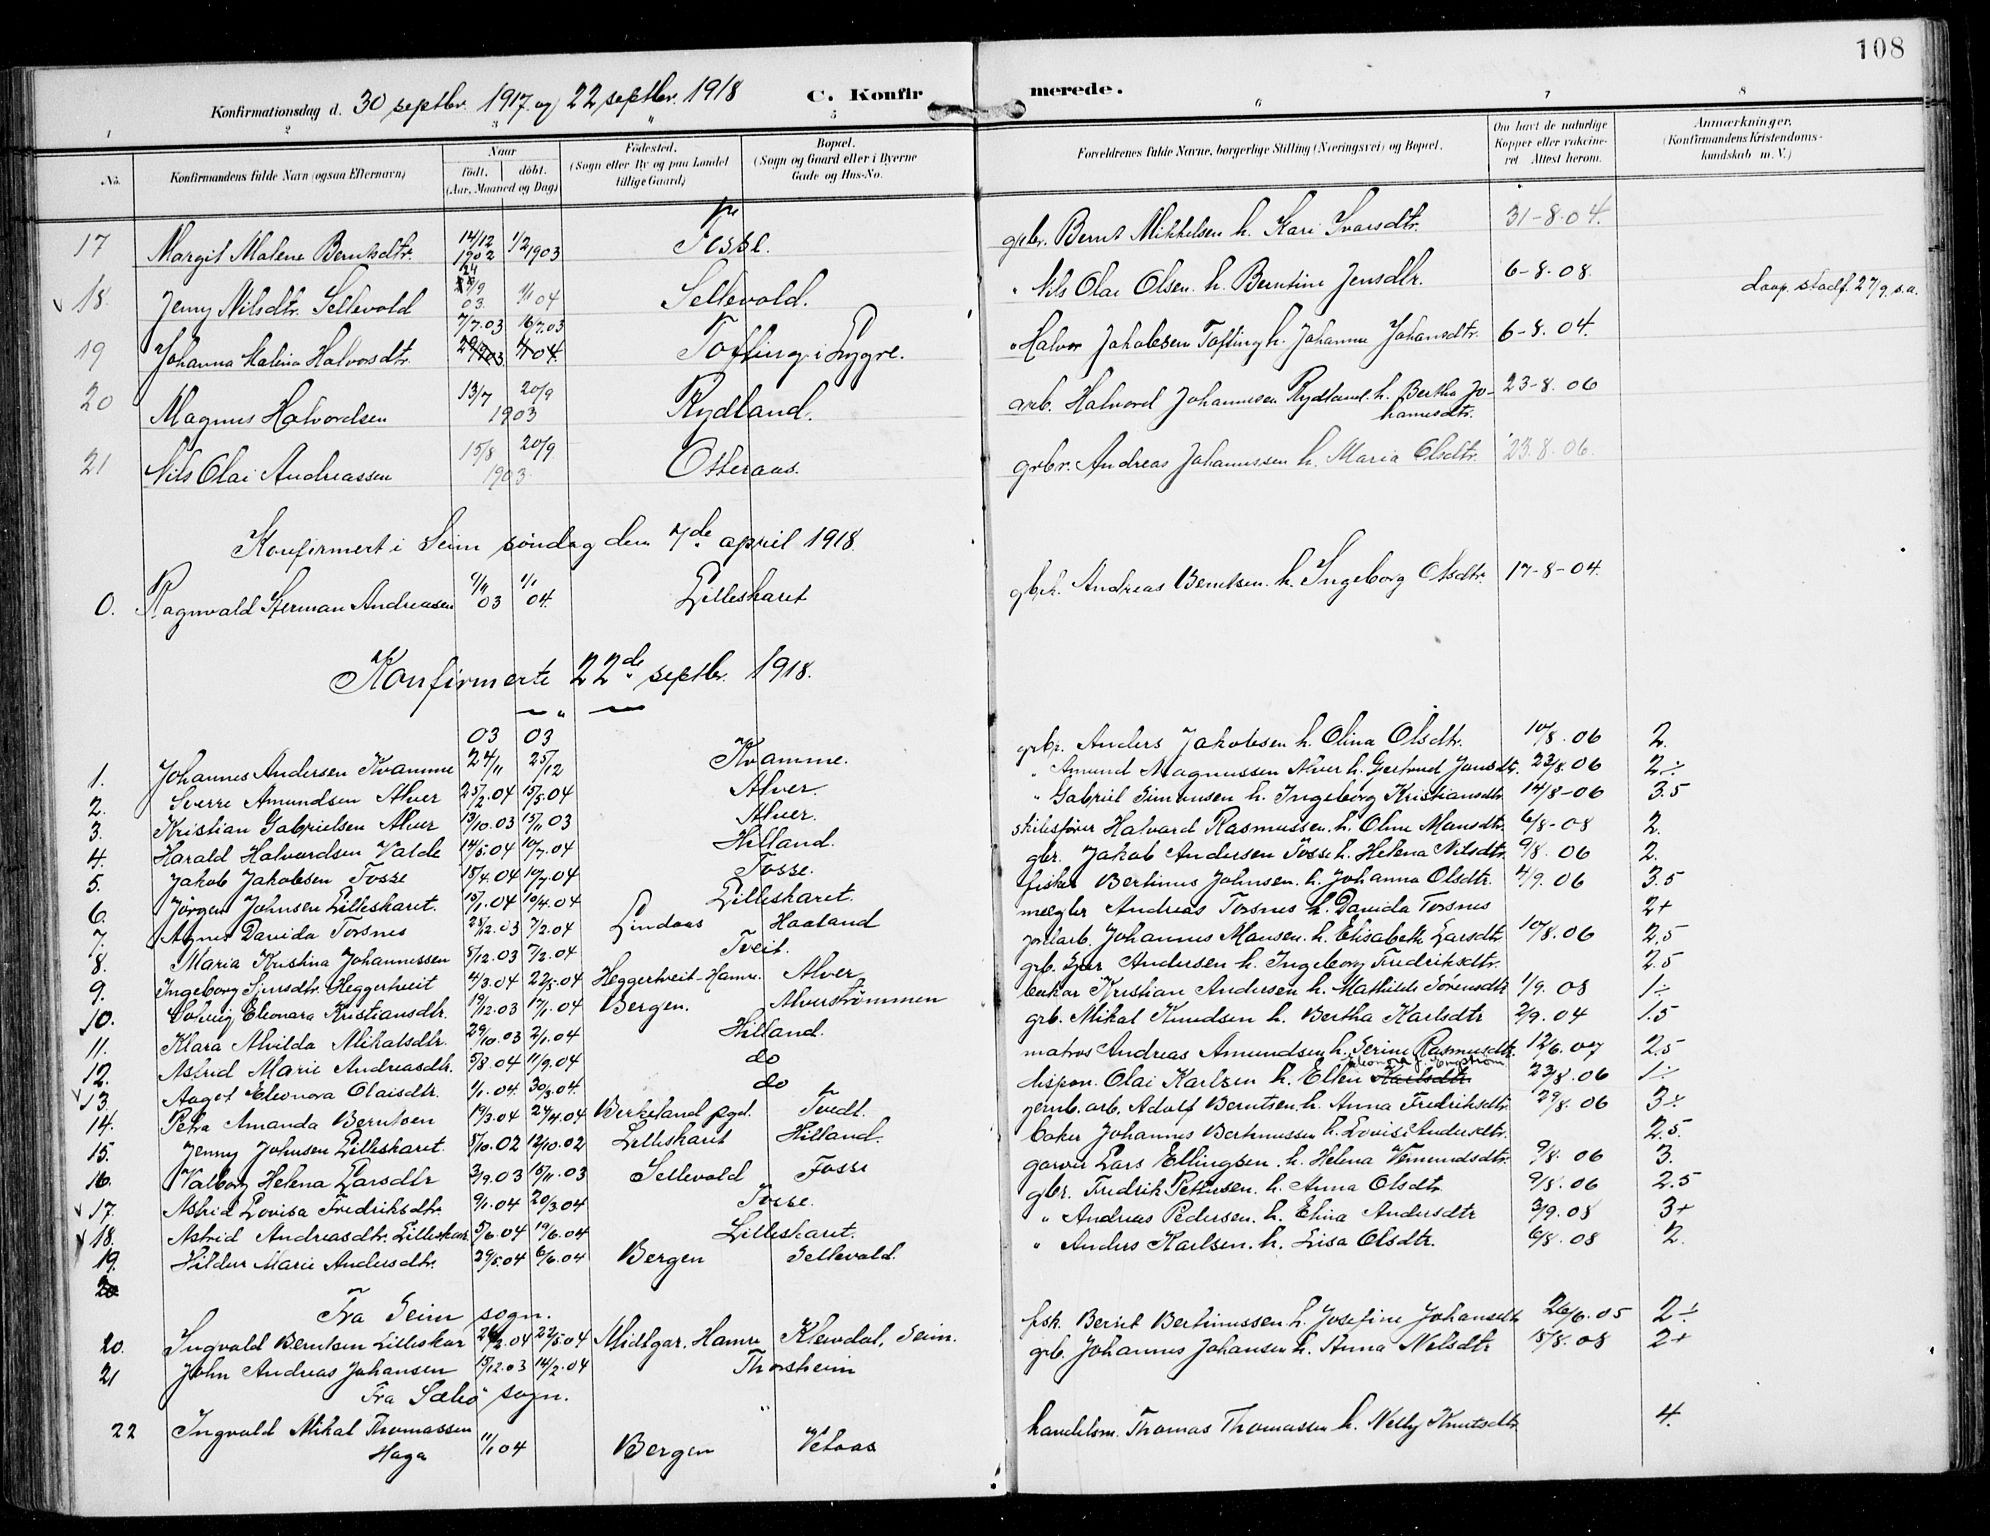 108
Konfirmationsdag d. 30 septbr. 1917 og 22 septbr. 1918 C. Konfir merede.
1 2 3 4 5 6 7 8
No. Konfirmandens fulde Navn (ogsaa Efternavn) Naar født. døbt. (Aar, Maaned og Dag) Fødested. (Sogn eller By og paa Landet tillige Gaard) Bopæl. (Sogn og Gaard eller i Byerne Gade og Hus-No. Forældrenes fulde Navne, borgerlige Stilling (Næringsvei) og Bopæl. Om havt de naturlige Kopper eller vakcineret. Attest herom. Anmærkninger. (Konfirmandens Kristendomskundskab m. V.)
17 Margit Malene Berntsdtr. 14/12 1902 1/2 1903 Fosse. grbr. Bernt Mikkelsen h. Kari Ivarsdtr. 31-8.04.
18. Jenny Nilsdtr. Sellevold 24/9 03. 1/1 04 Sellevold. " Nils Olai Olsen h. Berntine Jensdtr. 6-8.08. daap. stadf. 27/9 s.a.
19 Johanna Malina Halvorsdtr. 7/7.03 16/7.03 Tofting i Lygre. " Halvor Jakobsen Tofting h. Johanne Johansdtr. 6-8.04.
20 Magnus Halvordsen 13/7 20/9 1903 Rydland. arb. Halvord Johannesen Rydland h. Bertha Johannesdtr. 23-8.06
21 Nils Olai Andreassen 15/8 20/9 1903 Otteraas. grbr. Andreas Johannessen h. Maria Olsdtr. 23.8.06.
Konfirmert i Seim søndag den 7de april 1918
0. Ragnvald Herman Andreasen 9/11 03 1/1 04. Lilleskaret gbr. Andreas Berntsen h. Ingeborg Olsdtr. 17-8-04.
Konfirmerte 22de septbr. 1918.
03 03
1. Johannes Andersen Kvamme 24/11 25/12 Kvamme. grbr. Anders Jakobsen h. Olina Olsdtr. 10/8.06 2.
2. Sverre Amundsen Alver 25/2.04 15/5.04 Alver. " Amund Magnussen Alver h. Gjertrud Jonsdtr. 23/8.06 2÷
3. Kristian Gabrielsen Alver 13/10.03 15/11 03 Alver. " Gabriel Simonsen h. Ingeborg Kristiansdtr 14/8-06 3.5
4. Harald Halvardsen Valde 14/5.04 10/7.04 Hilland. skibsfører Halvard Rasmussen h. Oline Mansdtr. 6/8-08 2.
5. Jakob Jakobsen Fosse 15/4.04 10/7.04 Fosse. gbr. Jakob Andersen Fosse h. Helena Nilsdtr 9/8.06 2.
6. Jørgen Johnsen Lilleskaret. 15/1.04 10/4.04 Lilleskaret. fisker Bertinus Johnsen h. Johanna Olsdtr. 4/9.06 3.5
7. Agnes Davida Torsnes 25/12.03 7/2.04 Lindaas Haaland mægler Andreas Torsnes h. Davida Torsnes 2+
8. Maria Kristina Johannessen 8/12.03 7/2.04 Tveit. jordarb. Johannes Mansen h. Elisabeth Larsdtr 10/8.06 2.5
9. Ingeborg Sjursdtr. Heggertveit 4/3.04 22/5.04 Heggertveit Hamre. Alver grb. Sjur Andersen h. Ingeborg Fredriksdtr. 2.5
10. Solveig Eleonara Kristiansdtr. 19/12.03 17/1.04 Bergen. Alverstrømmen Kristian Andersen h. Mathilde Sørensdtr 1/9.08 1÷
11. Klara Alvilda Mikalsdtr. 29/10.03 2/1.04 Hilland. grb. Mikal Knudsen h. Bertha Karlsdtr 2/9.04 1.5
12. Astrid Marie Andreasdtr. 5/8.04 11/9.04 do matros Andreas Amundsen h. Serine Rasmusdtr. 12/6.07 2.5
13. Aagot Eleonora Olaisdtr. 1/1.04. 30/3.04. do dispon. Olai Karlsen h. Ellen Karlsdtr 23/8.06 1÷
14. Petra Amanda Berntsen 14/3.04 24/4.04 Birkeland pgd. Tvedt. jernb. arb. Adolf Berntsen h. Anna Fredriksdtr. 29/8.06 3+
15. Jenny Johnsen Lilleskaret. 5/10.02 12/10.02 Lilleskaret Hilland. baker Johannes Bertinussen h. Lovise Andersdtr. 2.5.
16. Valborg Helena Larsdtr 3/9.03 15/11.03 Sellevold Fosse garver Lars Ellingsen h. Helena Vemundsdtr. 9/8.06 3.
17. Astrid Lovisa Fredriksdtr. 9/1.04 20/3.04 Fosse. gbr. Fredrik Pettersen h. Anna Olsdtr. 9/8.06 2.5
18. Astrid Andreasdtr. Lilleskar. 5/6.04 19/6.04 Lilleskaret. " Andreas Pedersen h. Elina Andersdtr 3/9.08 3+
19. Hildur Marie Andersdtr. 29/5.04 6/6.04 Bergen Sellevold " Anders Karlsen h. Lisa Olsdtr. 6/8.08 2.
20
Fra Seim sogn.
20. Ingvald Berntsen Lilleskar 22/5.04 Midtgar. Hamre Kleivdal, Seim. fisk. Bernt Bertinussen h. Josefine Johansdtr 26/6.05 2÷
21 John Andreas Johansen 15/12.03 14/2.04 Thorsheim grb. Johannes Johansen h. Anna Nilsdtr 15/8.08 2+
Fra Sæbø sogn.
22 Ingvald Mikal Thomassen Haga 11/1 04 Bergen Vetaas handelsm. Thomas Thomassen h. Nelly Knutsdtr. 4.